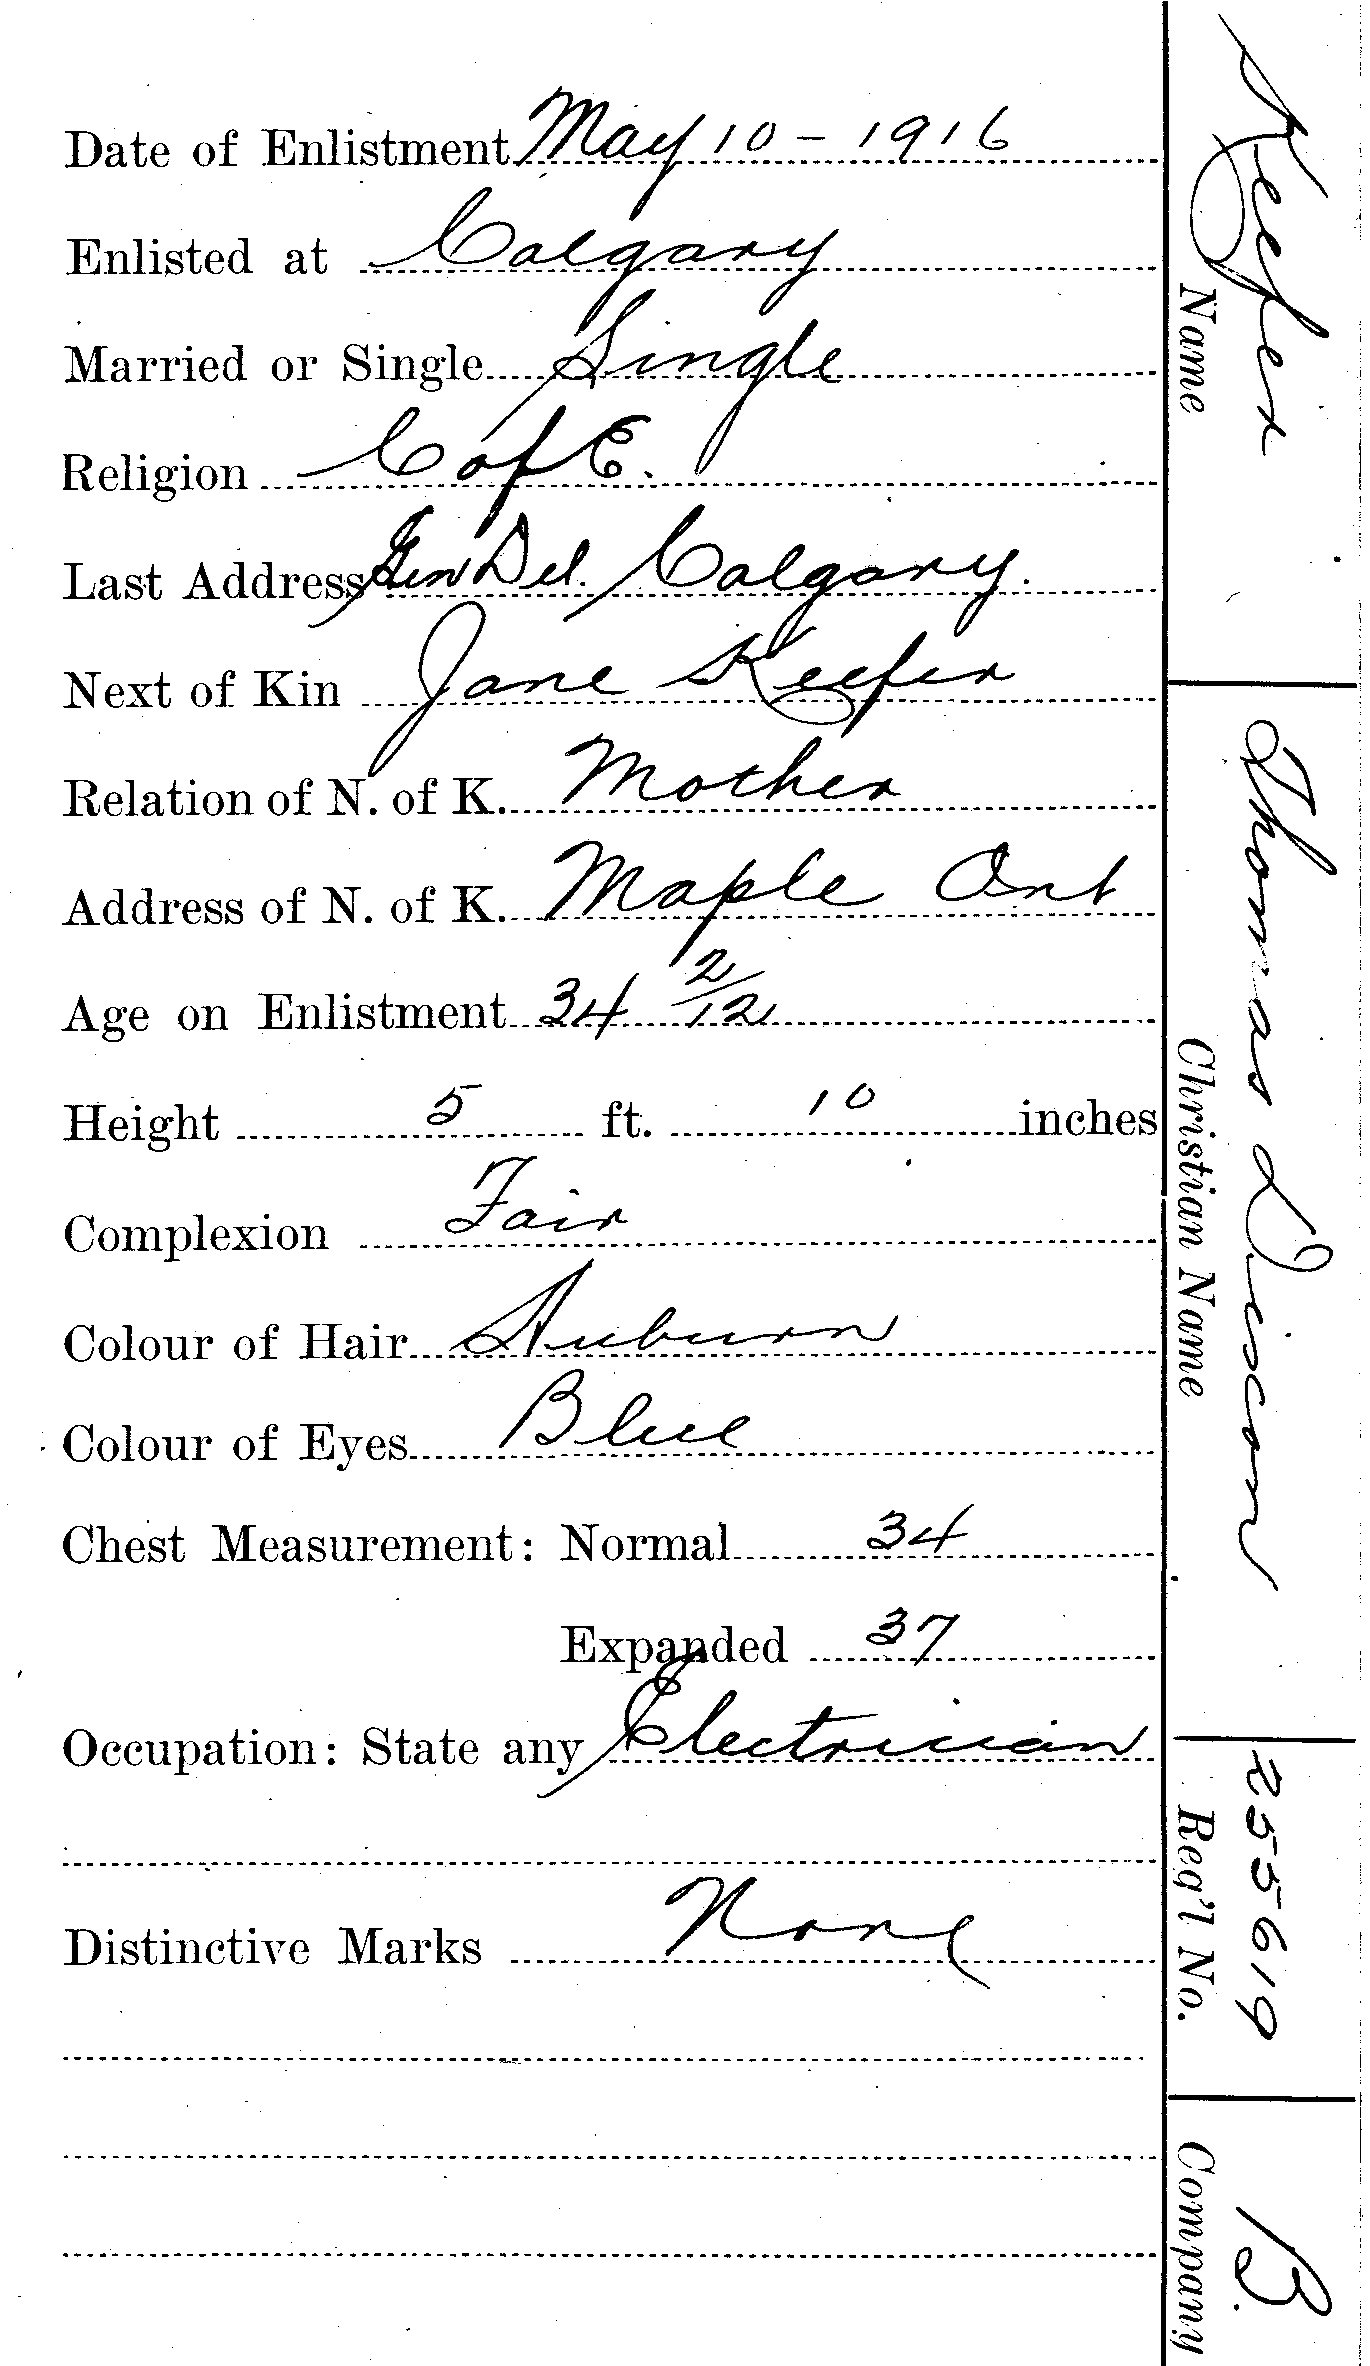 Date of Enlistment May 10 - 1916
Enlisted at Calgary
Married or Single Single
Religion C of E.
Last Address Gen Del. Calgary.
Next of Kin Jane Keefer
Relation of N. of K. Mother
Address of N. of K. Maple Ont
Age on Enlistment 34 2/12
Height 5 ft. 10 inches
Complexion Fair
Colour of Hair Auburn
Colour of Eyes Blue
Chest Measurement: Normal 34
Expanded 37
Occupation: State any Electrician
Distinctive Marks None
Keefer
Name
Thomas Dixon
Christian Name
255619
Reg'l No.
B.
Company